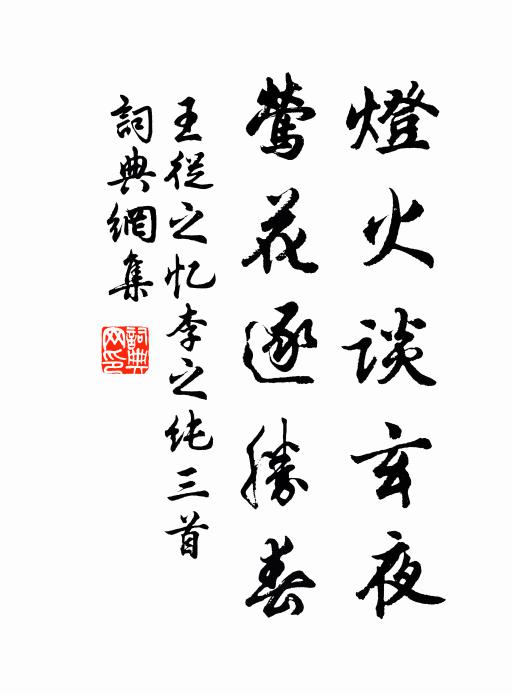 燈火談玄夜
鶯花逐勝春
王從之忆李之純三首
詞典網集
詞典网印